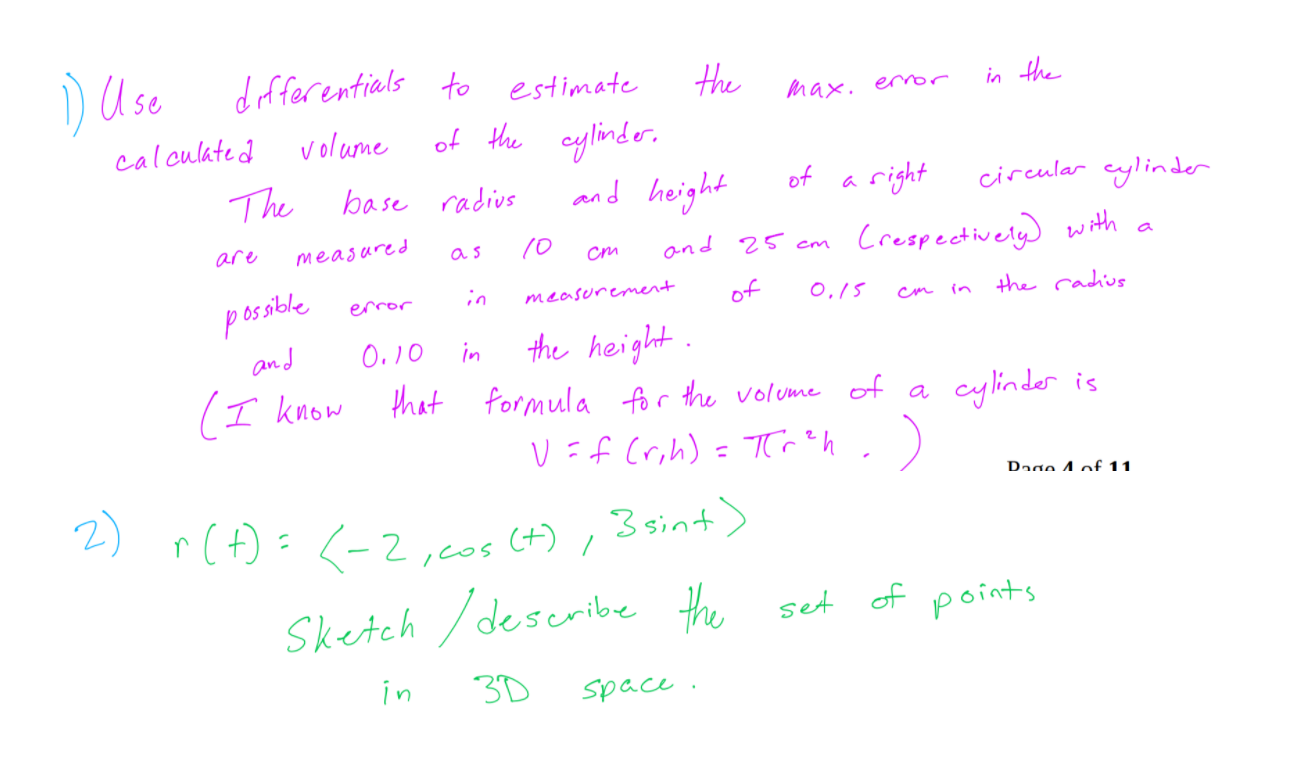 1) Use differentials to estimate the max. error in the
calculated volume of the cylinder.
The base radius and height of a right circular cylinder
are measured as 10 cm and 25 cm (respectively) with a
possible error in measurement of 0.15 cm in the radius
and 0.10 in the height.
(I know that formula for the volume of a cylinder is
V = f(r,h) = πr²h . )
Page 4 of 11
2) r(t) = ⟨-2, cos(t), 3sint⟩
Sketch / describe the set of points
in 3D space.